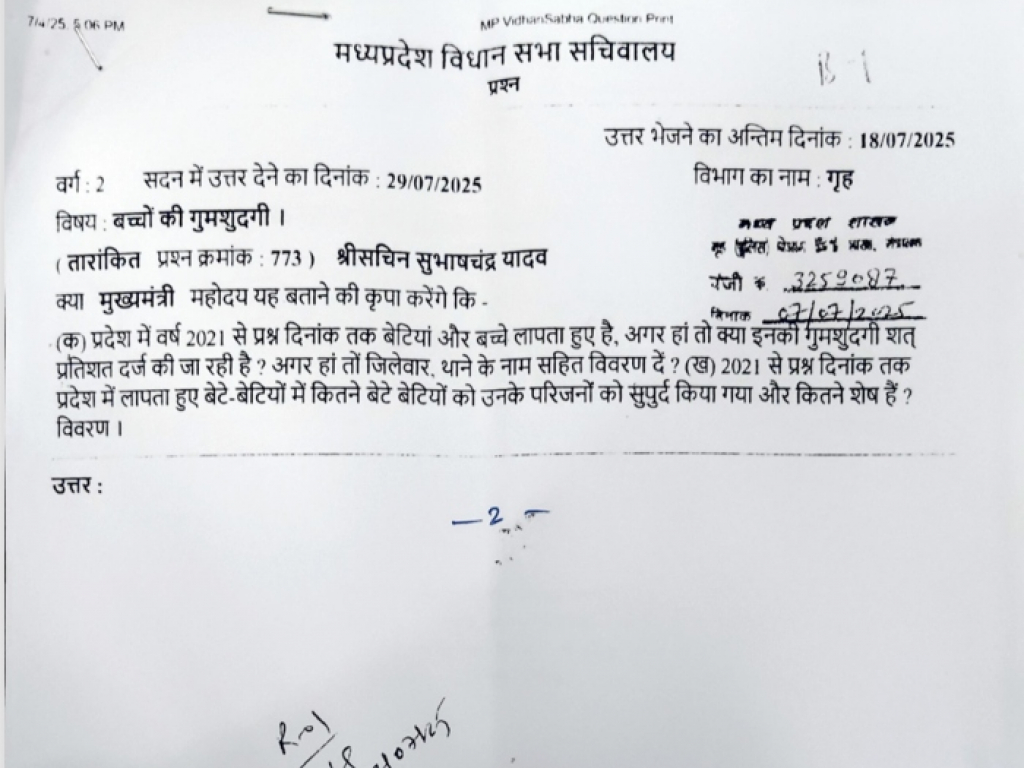 7/4/25, 5:06 PM
MP VidhanSabha Question Print
मध्यप्रदेश विधान सभा सचिवालय
प्रश्न
B-1
उत्तर भेजने का अन्तिम दिनांक : 18/07/2025
वर्ग : 2 सदन में उत्तर देने का दिनांक : 29/07/2025
विभाग का नाम : गृह
विषय : बच्चों की गुमशुदगी ।
मध्य प्रदेश शासन
गृह (पुलिस)
( तारांकित प्रश्न क्रमांक : 773 ) श्रीसचिन सुभाषचंद्र यादव
पंजी क्र. 3259087
क्या मुख्यमंत्री महोदय यह बताने की कृपा करेंगे कि -
दिनांक 07/07/2025
(क) प्रदेश में वर्ष 2021 से प्रश्न दिनांक तक बेटियां और बच्चे लापता हुए है, अगर हां तो क्या इनकी गुमशुदगी शत्
प्रतिशत दर्ज की जा रही है ? अगर हां तों जिलेवार, थाने के नाम सहित विवरण दें ? (ख) 2021 से प्रश्न दिनांक तक
प्रदेश में लापता हुए बेटे-बेटियों में कितने बेटे बेटियों को उनके परिजनों को सुपुर्द किया गया और कितने शेष हैं ?
विवरण ।
उत्तर :
- 2 -